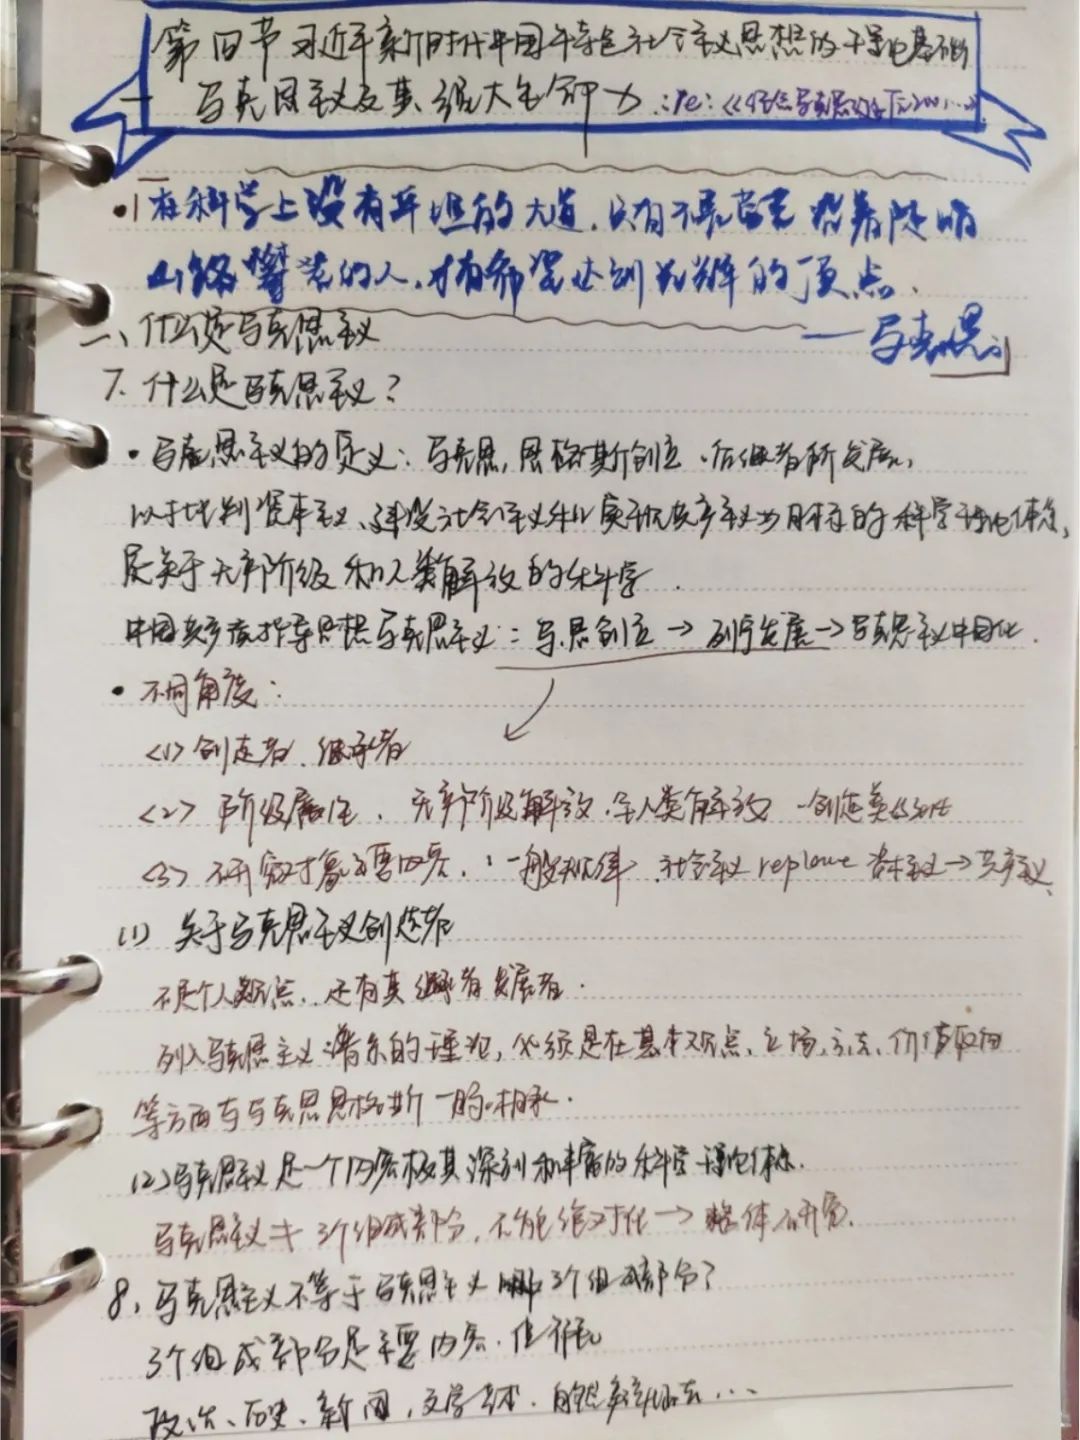 第四节 习近平新时代中国特色社会主义思想的理论基础
马克思主义及其强大生命力 :Pe:
•1在科学上没有平坦的大道,只有不畏劳苦沿着陡峭
山路攀登的人,才有希望达到光辉的顶点.
——马克思
一、什么是马克思主义
7. 什么是马克思主义?
• 马克思主义的定义: 马克思,恩格斯创立.后继者所发展,
以批判资本主义、建设社会主义和实现共产主义为目标的科学理论体系,
是关于无产阶级和人类解放的科学.
中国共产党指导思想马克思主义: 马.恩创立→列宁发展→马克思主义中国化.
• 不同角度:
<1> 创造者、继承者
<2> 阶级属性、无产阶级解放.全人类解放
<3> 研究对象主要内容.:一般规律.社会主义 replace 资本主义→共产主义
(1) 关于马克思主义创造者
不是个人观点,还有其继承者发展者.
列入马克思主义谱系的理论,必须是在基本观点,立场,方法、价值取向
等方面与马克思恩格斯一脉相承.
(2)马克思主义是一个内容极其深刻和丰富的科学理论体系.
马克思主义 ≠ 3个组成部分,不能绝对化→整体研究.
8、马克思主义不等于马克思主义哪3个组成部分?
3个组成部分是主要内容.
政治、历史、新闻,文学艺术.自然...